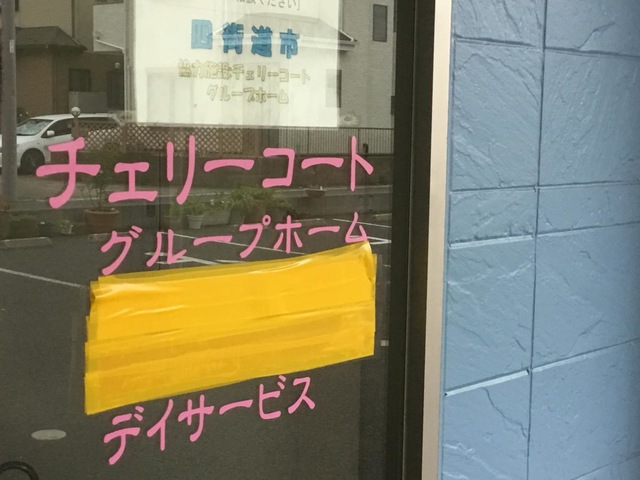 ください」
四街道市
協力施設チェリーコート
グループホーム
チェリーコート
グループホーム
デイサービス